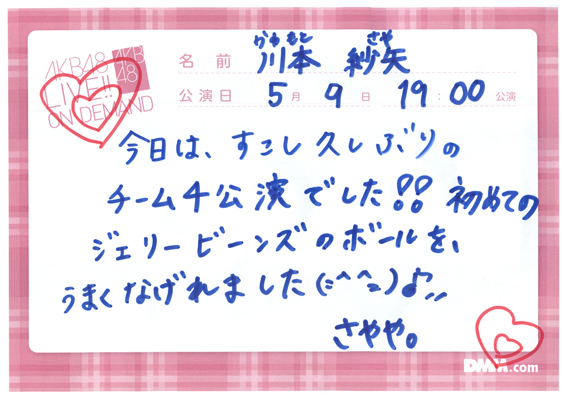 AKB48 AKB48
LIVE!!
ON DEMAND
かわもと さや
名前 川本 紗矢
公演日 5月 9日 19:00 公演
今日は、すこし久しぶりの
チーム4公演でした!! 初めての
ジェリービーンズのボールを、
うまくなげれました(=^^=)♪,,
さやや。
DMM.com